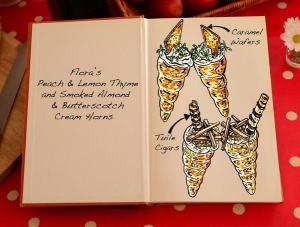 Flora's
Peach & Lemon Thyme
and Smoked Almond
& Butterscotch
Cream Horns
Caramel
Wafers
Tuile
Cigars